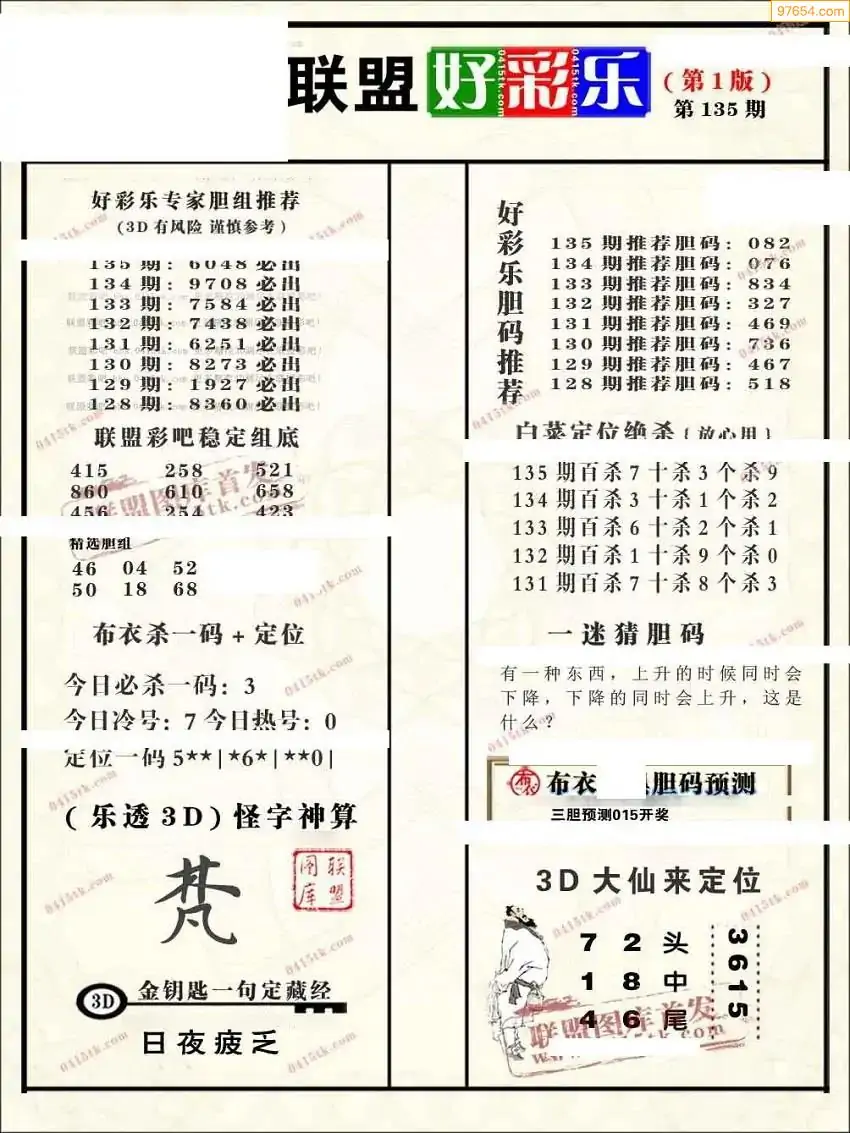 97654.com
联盟 好彩乐 (第1版)
第135期
好彩乐专家胆组推荐
(3D有风险 谨慎参考)
135期: 6048必出
134期: 9708必出
133期: 7584必出
132期: 7438必出
131期: 6251必出
130期: 8273必出
129期: 1927必出
128期: 8360必出
联盟彩吧稳定组底
415 258 521
860 610 658
456 254 423
精选胆组
46 04 52
50 18 68
布衣杀一码+定位
今日必杀一码: 3
今日冷号: 7 今日热号: 0
定位一码5**|*6*|**0|
(乐透3D)怪字神算
梵
联盟图库
3D 金钥匙一句定藏经
日夜疲乏
好彩乐胆码推荐
135期推荐胆码: 082
134期推荐胆码: 076
133期推荐胆码: 834
132期推荐胆码: 327
131期推荐胆码: 469
130期推荐胆码: 736
129期推荐胆码: 467
128期推荐胆码: 518
白菜定位绝杀{放心用}
135期百杀7十杀3个杀9
134期百杀3十杀1个杀2
133期百杀6十杀2个杀1
132期百杀1十杀9个杀0
131期百杀7十杀8个杀3
一迷猜胆码
有一种东西，上升的时候同时会
下降，下降的同时会上升，这是
什么？
布衣 胆码预测
三胆预测015开奖
3D大仙来定位
7 2 头
1 8 中
4 6 尾
3615
联盟图库首发
0415tk.com